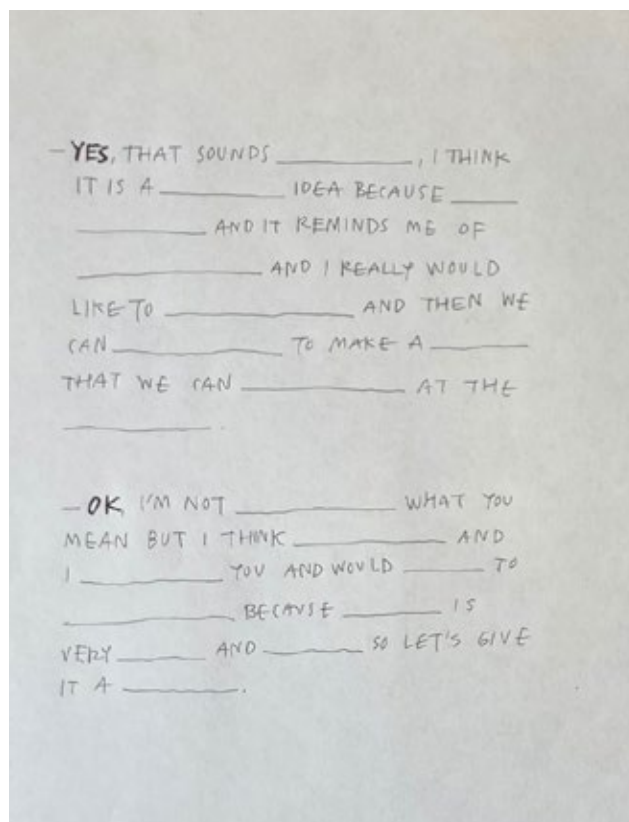 — YES, THAT SOUNDS __________, I THINK
IT IS A __________ IDEA BECAUSE _____
__________ AND IT REMINDS ME OF
______________ AND I REALLY WOULD
LIKE TO ______________ AND THEN WE
CAN ____________ TO MAKE A ________
THAT WE CAN ____________ AT THE
___________.
— OK, I'M NOT ____________ WHAT YOU
MEAN BUT I THINK ____________ AND
I __________ YOU AND WOULD ______ TO
____________ BECAUSE _______ IS
VERY ______ AND _______ SO LET'S GIVE
IT A ________.